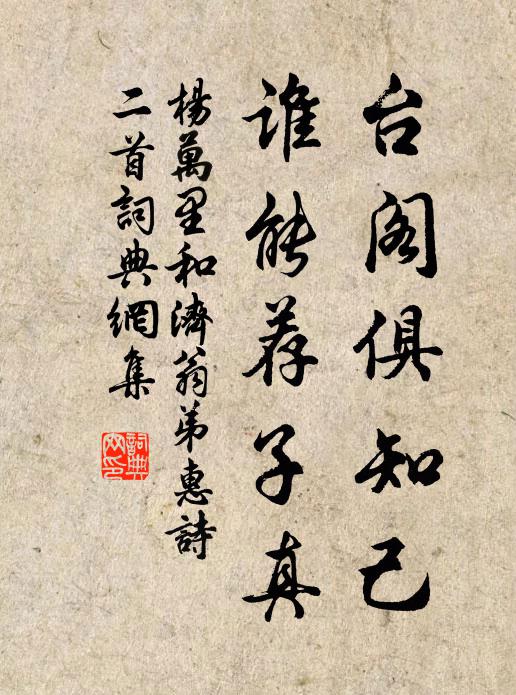 台阁俱知己
谁能荐子真
楊萬里和濟翁弟惠詩
二首詞典網集
詞典
网印